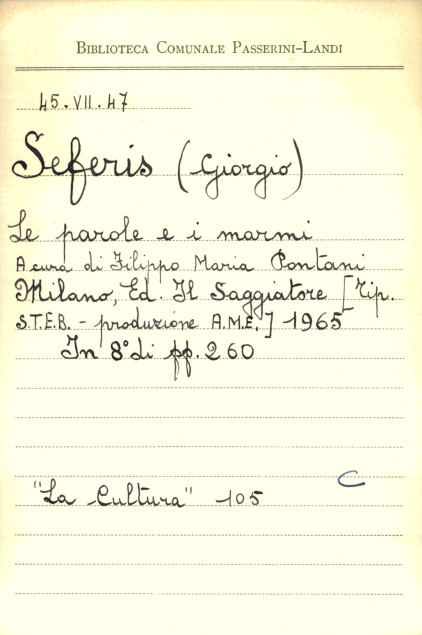 BIBLIOTECA COMUNALE PASSERINI-LANDI
45.VII.47
Seferis (Giorgio)
Le parole e i marmi
A cura di Filippo Maria Pontani
Milano, Ed. Il Saggiatore [Tip.
S.T.E.B. - produzione A.M.E.] 1965
In 8° di pp. 260
C
"La Cultura" 105